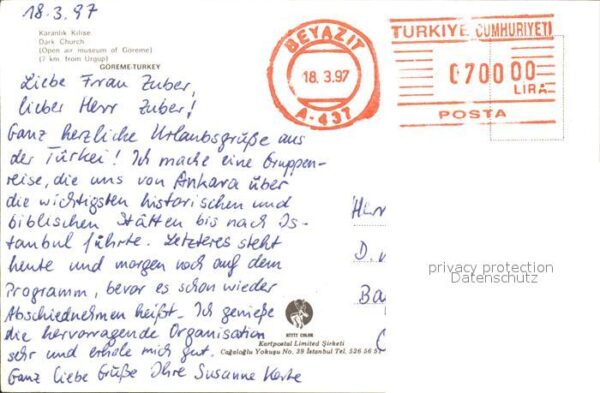 18.3.97
Karanlık Kilise
Dark Church
(Open air museum of Göreme)
(7 km from Urgup)
GÖREME-TURKEY
BEYAZIT
18.3.97
A-437
TÜRKİYE CUMHURİYETİ
070000
LIRA
POSTA
Liebe Frau Zuber,
lieber Herr Zuber!
Ganz herzliche Urlaubsgrüße aus
der Türkei! Ich mache eine Gruppen-
reise, die uns von Ankara über
die wichtigsten historischen und
biblischen Stätten bis nach Is-
tanbul führte. Letzteres steht
heute und morgen noch auf dem
Programm, bevor es schon wieder
Abschiednehmen heißt. Ich genieße
die hervorragende Organisation
sehr und erhole mich gut.
Ganz liebe Grüße Ihre Susanne
Herr
D.
Ba
privacy protection
Datenschutz
Kartpostal Limited Şirketi
Cağaloğlu Yokuşu No. 39 İstanbul Tel. 526 56 5